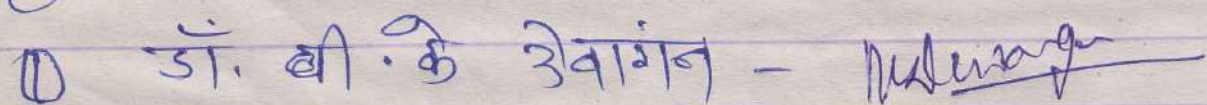 ① डॉ. बी. के देवांगन -